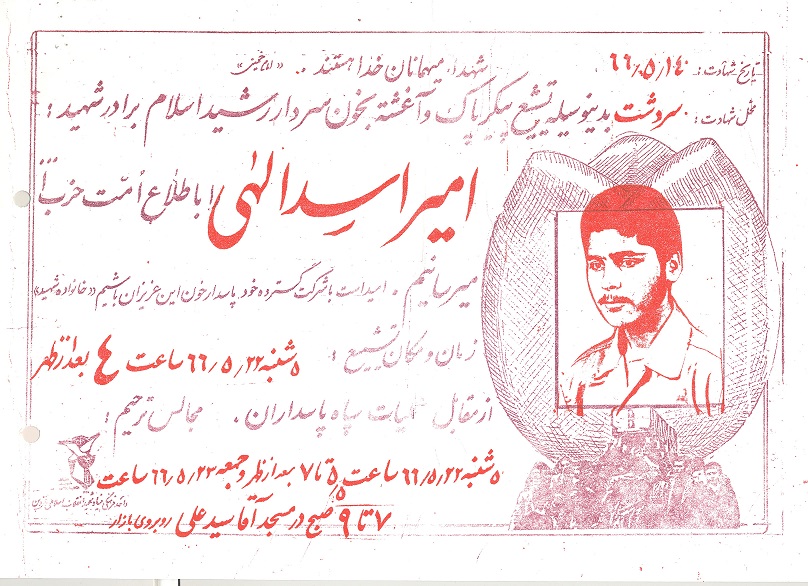 تاریخ شهادت: ۶۶٫۵٫۱۴
شهدا میهمانان خدا هستند .. «امام خمینی»
محل شهادت: سردشت
بدینوسیله تشیع پیکر پاک و آغشته بخون سردار رشید اسلام برادر شهید:
امیر اسدالهی را باطلاع امّت حزب ا...
میرسانیم. امید است با شرکت گسترده خود پاسدار خون این عزیزان باشیم «خانواده شهید»
زمان و مکان تشییع:
۵ شنبه ۶۶٫۵٫۲۲ ساعت ۴ بعد از ظهر
از مقابل عملیات سپاه پاسداران. مجالس ترحیم:
۵ شنبه ۶۶٫۵٫۲۲ ساعت ۵٫۵ تا ۷ بعد از ظهر و جمعه ۶۶٫۵٫۲۳ ساعت
۷ تا ۹ صبح در مسجد آقا سید علی روبروی بازار
واحد فرهنگی بنیاد شهید انقلاب اسلامی